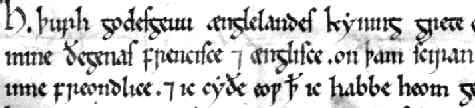 H. þurh godesgeuu ænglelandes kẏning grete
mine ðegenas frencisce ⁊ englisce. on þam sciran
inne freondlice. ⁊ ic cẏðe eop þ̄ ic habbe heom g